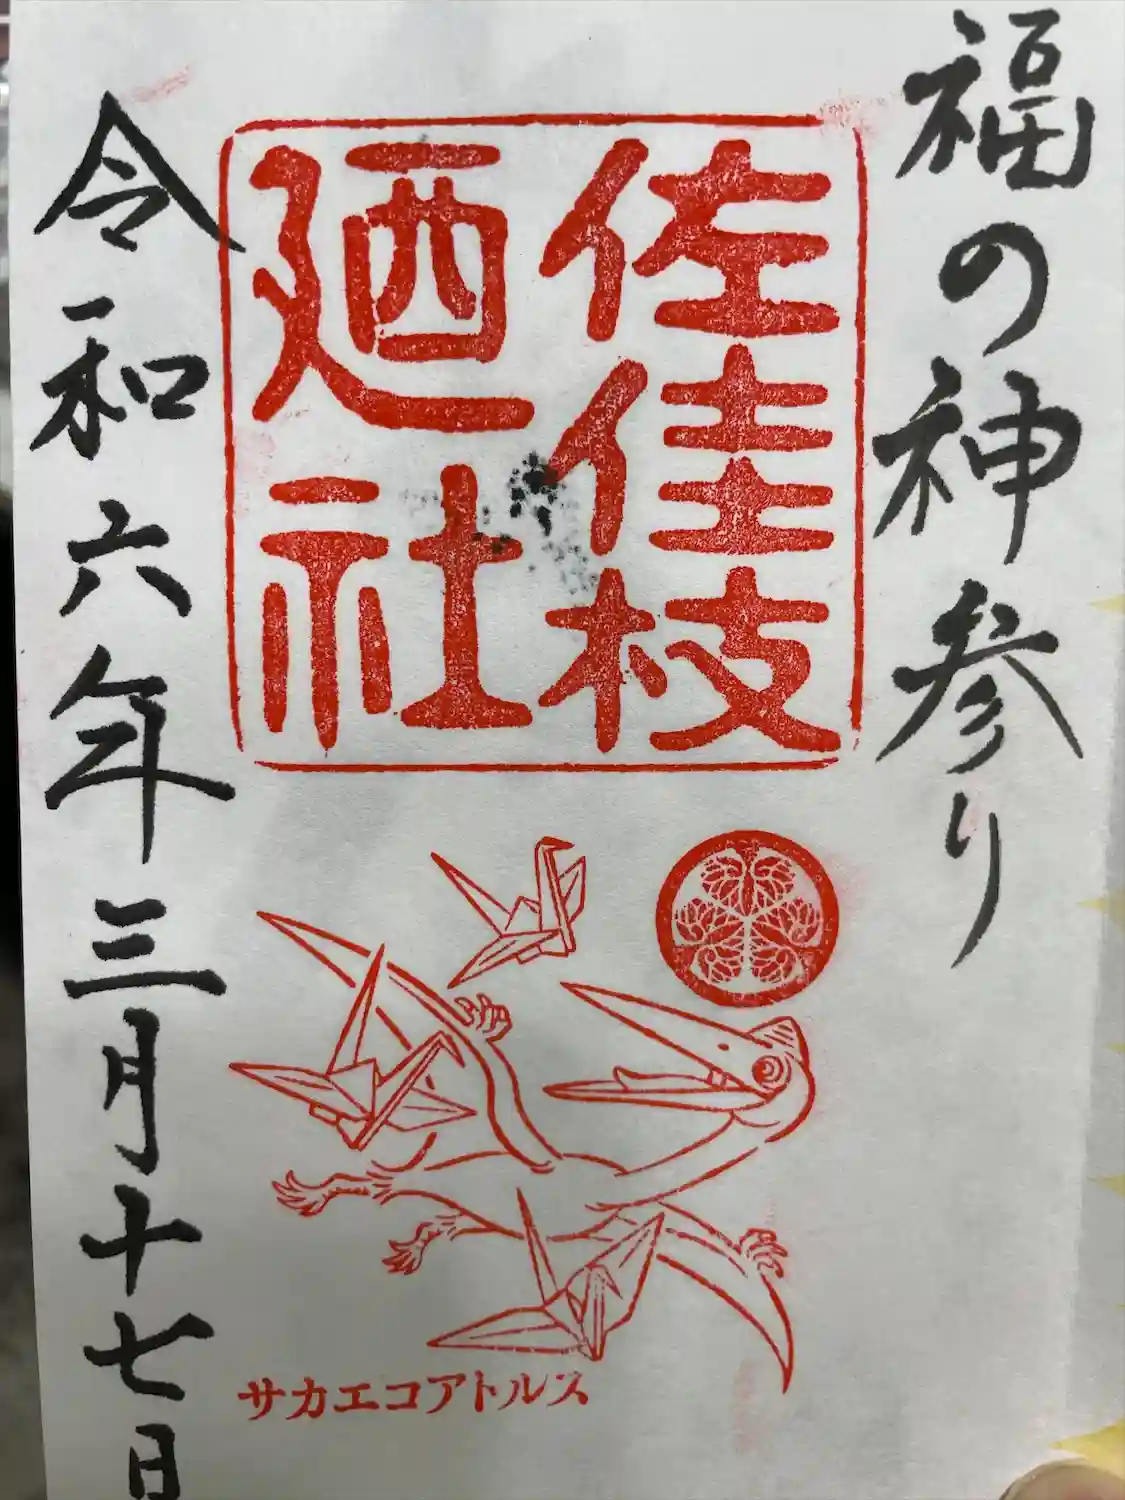 福の神参り
佐佳枝
廼社
令和六年三月十七日
サカエコアトルス